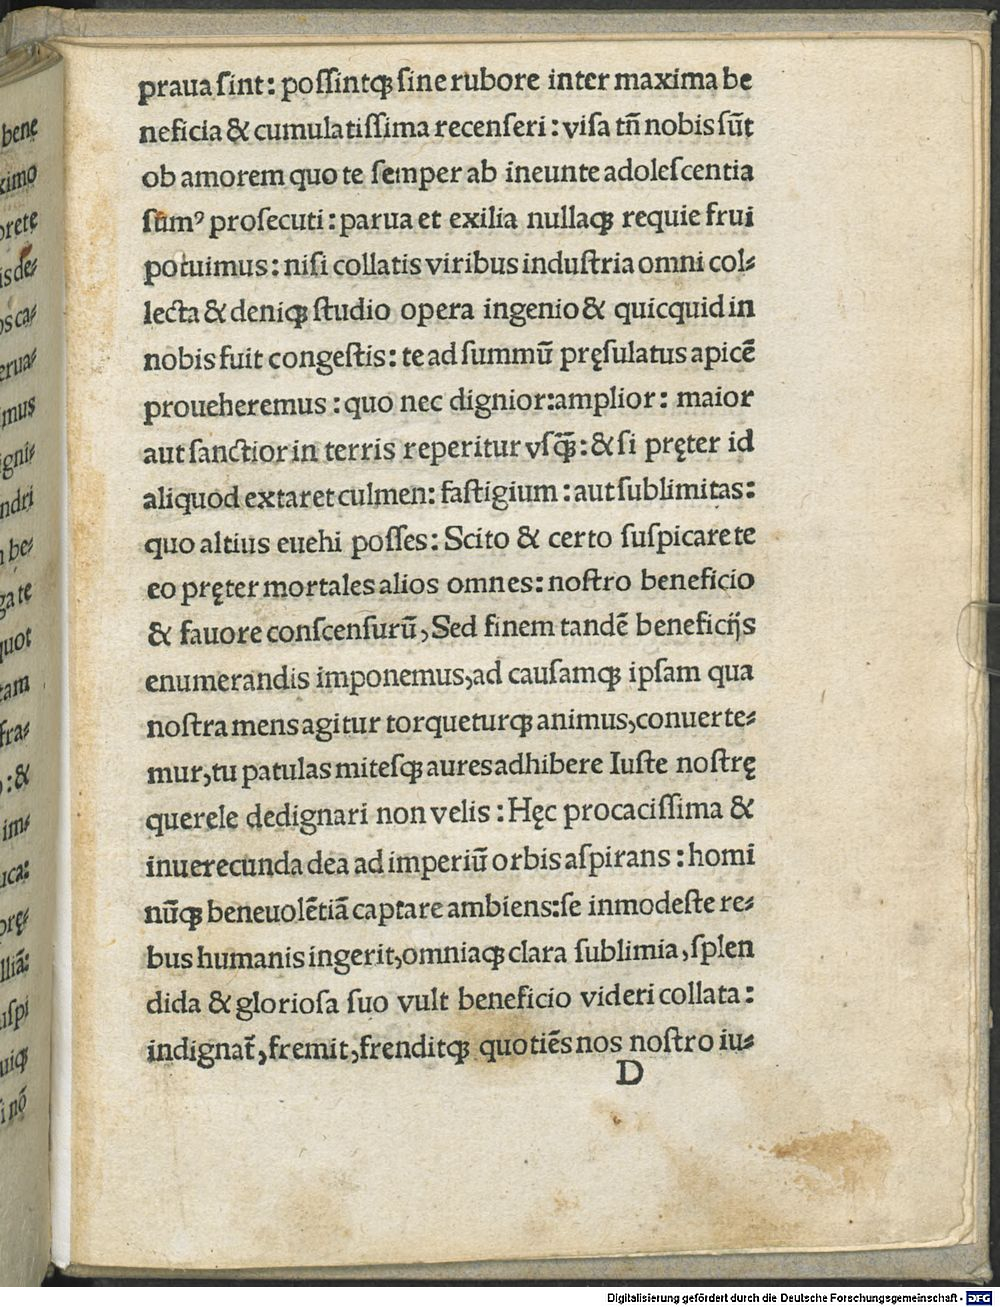 praua ſint: poſſintqꝫ ſine rubore inter maxima be
neficia & cumulatiſſima recenſeri: viſa tñ nobis ſūt
ob amorem quo te ſemper ab ineunte adoleſcentia
ſumꝰ proſecuti: parua et exilia nullaqꝫ requie frui
potuimus: niſi collatis viribus induſtria omni col⸗
lecta & deniqꝫ ſtudio opera ingenio & quicquid in
nobis fuit congeſtis: te ad ſummū pręſulatus apicē
proueheremus: quo nec dignior: amplior: maior
aut ſanctior in terris reperitur vſqꝫ̄: & ſi pręter id
aliquod extaret culmen: faſtigium: aut ſublimitas:
quo altius euehi poſſes: Scito & certo ſuſpicare te
eo pręter mortales alios omnes: noſtro beneficio
& fauore conſcenſurū, Sed finem tandē beneficijs
enumerandis imponemus, ad cauſamqꝫ ipſam qua
noſtra mens agitur torqueturqꝫ animus, conuerte⸗
mur, tu patulas miteſqꝫ aures adhibere Iuſte noſtrę
querele dedignari non velis: Hęc procaciſſima &
inuerecunda dea ad imperiū orbis aſpirans: homi
nūqꝫ beneuolētiā captare ambiens: ſe inmodeſte re⸗
bus humanis ingerit, omniaqꝫ clara ſublimia, ſplen
dida & glorioſa ſuo vult beneficio videri collata:
indignat̄, fremit, frenditqꝫ quotiēs nos noſtro iu⸗
D
bene
ximo
prete
is de⸗
os ca⸗
erua⸗
imus
igni⸗
ndri
be⸗
ga te
quot
tam
fra⸗
: &
im⸗
uca:
prę⸗
lliā:
uſpi
uiqꝫ
i nō
Digitalisierung gefördert durch die Deutsche Forschungsgemeinschaft - DFG